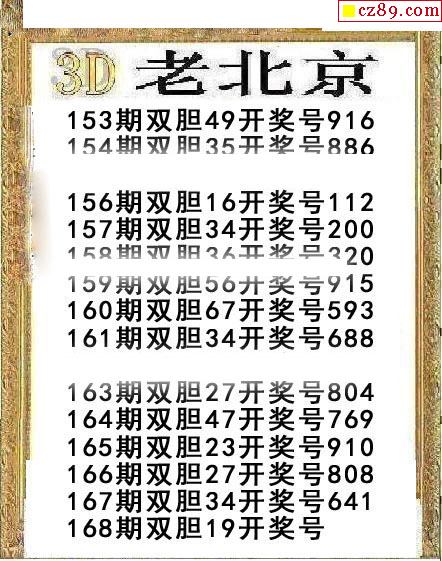 cz89.com
3D 老北京
153期双胆49开奖号916
154期双胆35开奖号886
156期双胆16开奖号112
157期双胆34开奖号200
158期双胆36开奖号320
159期双胆56开奖号915
160期双胆67开奖号593
161期双胆34开奖号688
163期双胆27开奖号804
164期双胆47开奖号769
165期双胆23开奖号910
166期双胆27开奖号808
167期双胆34开奖号641
168期双胆19开奖号